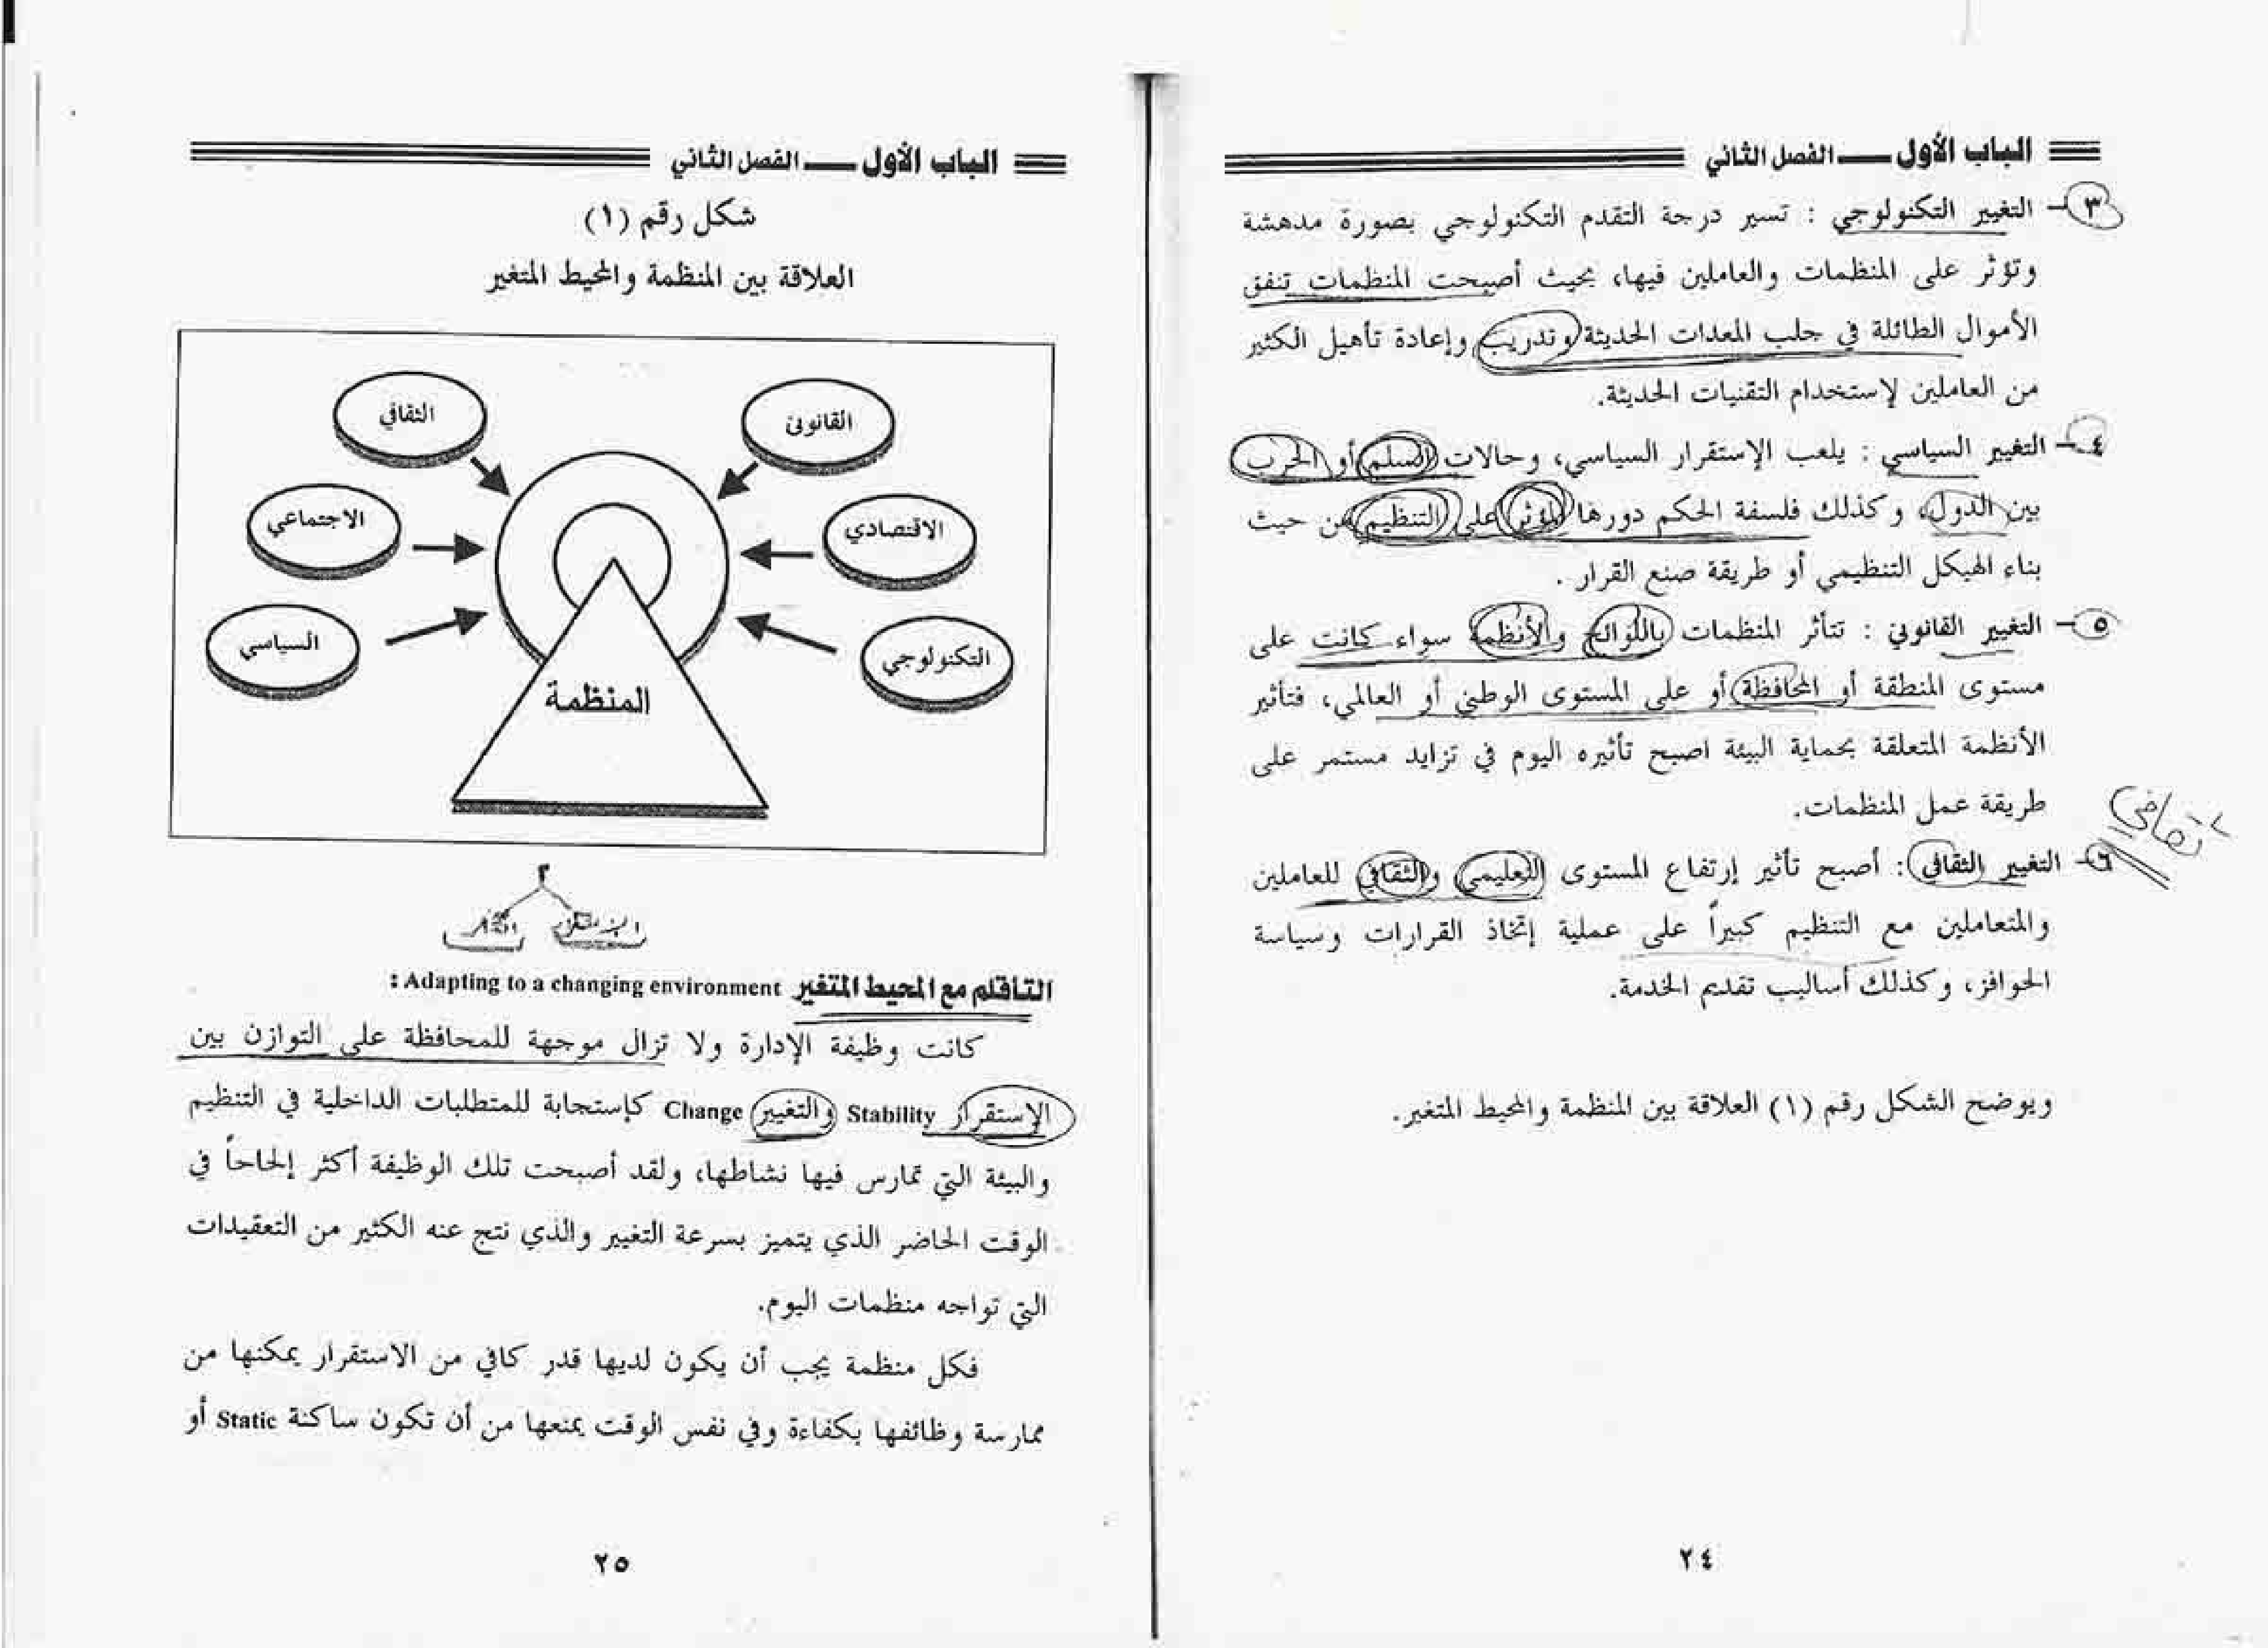 الباب الأول — الفصل الثاني
٣- التغيير التكنولوجي : تسير درجة التقدم التكنولوجي بصورة مدهشة
وتؤثر على المنظمات والعاملين فيها، بحيث أصبحت المنظمات تنفق
الأموال الطائلة في جلب المعدات الحديثة وتدريب وإعادة تأهيل الكثير
من العاملين لإستخدام التقنيات الحديثة.
٤- التغيير السياسي : يلعب الإستقرار السياسي، وحالات السلم أو الحرب
بين الدول، وكذلك فلسفة الحكم دورها المؤثر على التنظيم من حيث
بناء الهيكل التنظيمي أو طريقة صنع القرار .
٥- التغيير القانوني : تتأثر المنظمات باللوائح والأنظمة سواء كانت على
مستوى المنطقة أو المحافظة أو على المستوى الوطني أو العالمي، فتأثير
الأنظمة المتعلقة بحماية البيئة اصبح تأثيره اليوم في تزايد مستمر على
طريقة عمل المنظمات.
ثقافي
٦- التغيير الثقافي : أصبح تأثير إرتفاع المستوى التعليمي والثقافي للعاملين
والمتعاملين مع التنظيم كبيراً على عملية إتخاذ القرارات وسياسة
الحوافز، وكذلك أساليب تقديم الخدمة.
ويوضح الشكل رقم (١) العلاقة بين المنظمة والمحيط المتغير.
٢٤
الباب الأول — الفصل الثاني
شكل رقم (١)
العلاقة بين المنظمة والمحيط المتغير
القانوني
الثقافي
الاقتصادي
الاجتماعي
التكنولوجي
السياسي
المنظمة
٢
التأقلم مع المحيط المتغير Adapting to a changing environment :
كانت وظيفة الإدارة ولا تزال موجهة للمحافظة على التوازن بين
الإستقرار Stability والتغيير Change كإستجابة للمتطلبات الداخلية في التنظيم
والبيئة التي تمارس فيها نشاطها، ولقد أصبحت تلك الوظيفة أكثر إلحاحاً في
الوقت الحاضر الذي يتميز بسرعة التغيير والذي نتج عنه الكثير من التعقيدات
التي تواجه منظمات اليوم.
فكل منظمة يجب أن يكون لديها قدر كافي من الاستقرار يمكنها من
ممارسة وظائفها بكفاءة وفي نفس الوقت يمنعها من أن تكون ساكنة Static أو
٢٥